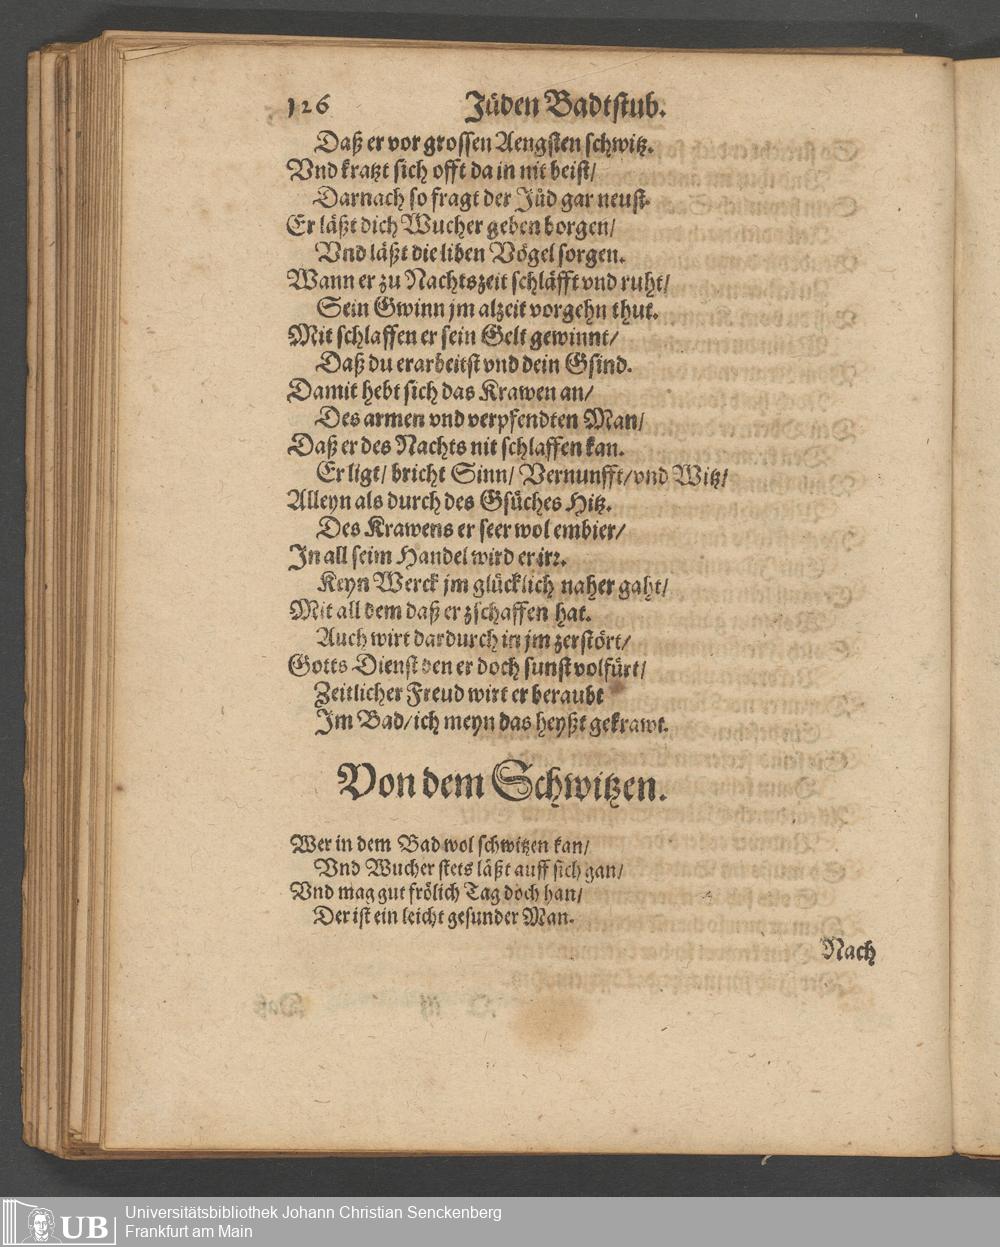 126 Jüden Badtstub.
Daß er vor grossen Aengsten schwitz.
Vnd kratzt sich offt da in nit beist/
Darnach so fragt der Jüd gar neust.
Er läßt dich Wucher geben borgen/
Vnd läßt die liben Vögel sorgen.
Wann er zu Nachtszeit schläfft vnd ruht/
Sein Gwinn jm alzeit vorgehn thut.
Mit schlaffen er sein Gelt gewinnt/
Daß du erarbeitst vnd dein Gsind.
Damit hebt sich das Krawen an/
Des armen vnd verpfendten Man/
Daß er des Nachts nit schlaffen kan.
Er ligt/ bricht Sinn/ Vernunfft/ vnd Witz/
Alleyn als durch des Gsüches Hitz.
Des Krawens er seer wol embier/
In all seim Handel wird er irr.
Keyn Werck jm glücklich naher gaht/
Mit all dem daß er zschaffen hat.
Auch wirt dardurch in jm zerstört/
Gotts Dienst den er doch sunst volfürt/
Zeitlicher Freud wirt er beraubt
Im Bad/ ich meyn das heyßt gekrawt.
Von dem Schwitzen.
Wer in dem Bad wol schwitzen kan/
Vnd Wucher stets läßt auff sich gan/
Vnd mag gut frölich Tag doch han/
Der ist ein leicht gesunder Man.
Nach
UB Universitätsbibliothek Johann Christian Senckenberg
Frankfurt am Main